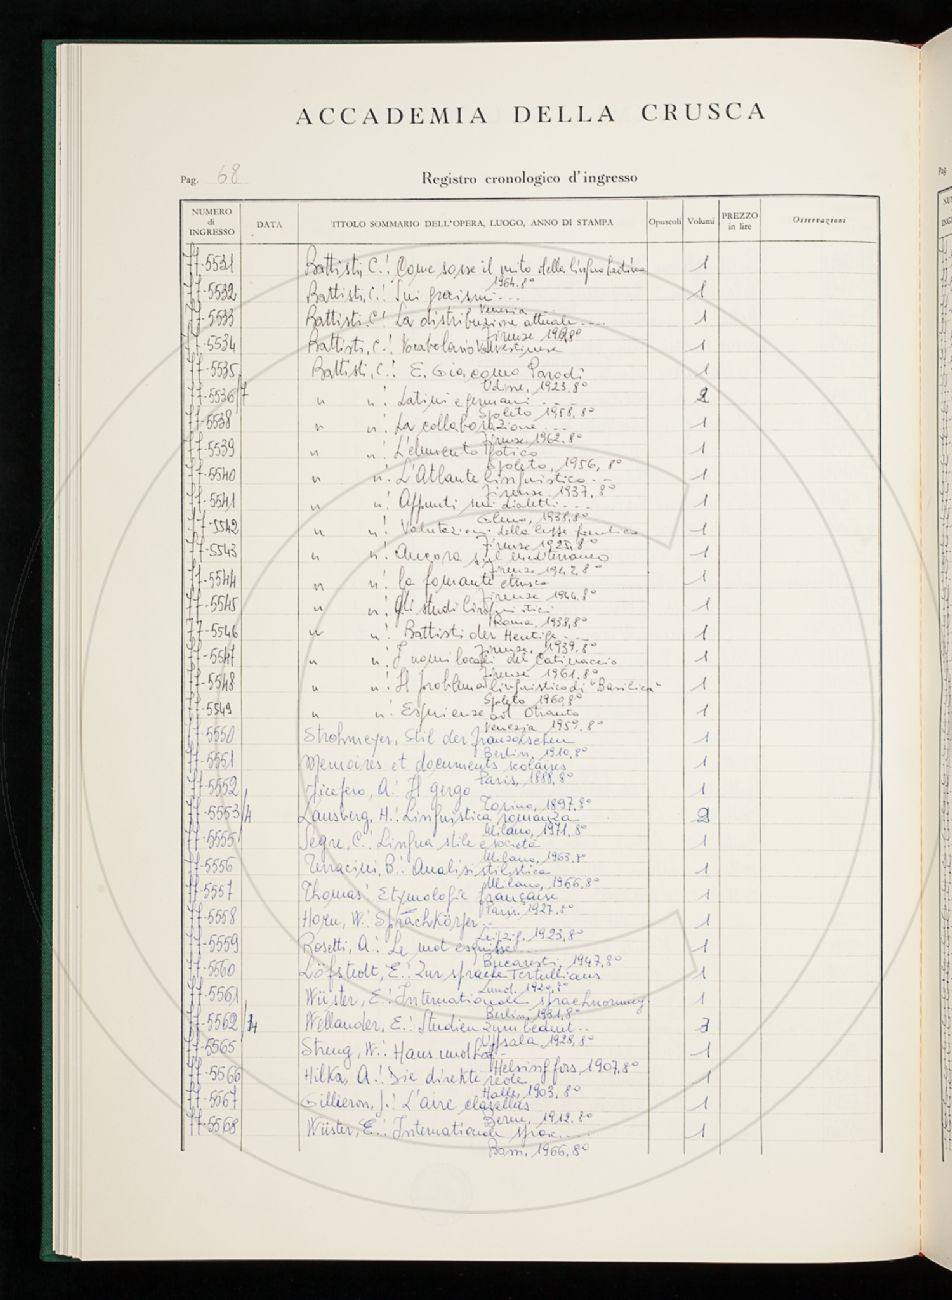 ACCADEMIA DELLA CRUSCA
Pag. 68
Registro cronologico d'ingresso
NUMERO di INGRESSO DATA TITOLO SOMMARIO DELL'OPERA, LUOGO, ANNO DI STAMPA Opuscoli Volumi PREZZO in lire Osservazioni
77-5531 Battisti, C.: Come sorse il mito della 1
1964. 8°
77-5532 Battisti, C.: Sui grecismi... 1
Venezia
77-5533 Battisti, C.: La distribuzione attuale.... 1
Firenze 8°
77-5534 Battisti, C.: Vocabolario 1
77-5535 Battisti, C.: E. Giacomo Parodi 1
Udine, 1923. 8°
77-5536/7 " ": Latini e germani 2
Spoleto 1958. 8°
77-5538 " ": La collaborazione... 1
Firenze 1962. 8°
77-5539 " ": L'elemento gotico 1
Spoleto, 1956, 8°
77-5540 " ": L'Atlante linguistico... 1
Firenze 1937, 8°
77-5541 " ": Appunti sui dialetti... 1
1938, 8°
77-5542 " ": Valutazioni della legge 1
Firenze 1925, 8°
77-5543 " ": Ancora sul mediterraneo 1
Firenze 1942. 8°
77-5544 " ": La formante etrusca 1
Firenze 1944. 8°
77-5545 " ": Gli studi linguistici 1
Roma, 1938, 8°
77-5546 " ": Battisti der Heutige 1
Firenze, 1939, 8°
77-5547 " ": I nomi locali del Catinaccio 1
Firenze 1961. 8°
77-5548 " ": Il problema linguistico di "Basilica" 1
Spoleto 1960, 8°
77-5549 " ": Esperienze Otranto 1
Venezia 1959. 8°
77-5550 Strohmeyer, Stil der französischen 1
Berlin, 1910, 8°
77-5551 Memoires et documents scolaires 1
Paris, 1888, 8°
77-5552 Niceforo, A.: Il gergo 1
Torino, 1897, 8°
77-5553/4 Lausberg, H.: Linguistica romanza 2
Milano, 1971, 8°
77-5555 Segre, C.: Lingua stile e società 1
Milano, 1963, 8°
77-5556 Terracini, B.: Analisi stilistica 1
Milano, 1966, 8°
77-5557 Thomas: Etymologie française 1
Paris. 1927. 8°
77-5558 Horn, W.: Sprachkörper.. 1
Leipzig. 1923, 8°
77-5559 Rosetti, A.: Le mot esquisse... 1
Bucaresti, 1947, 8°
77-5560 Löfstedt, E.: Zur sprache Tertullians 1
Lund. 1920, 8°
77-5561 Wüster, E.: Internationale sprachnormung 1
Berlin, 1931, 8°
77-5562/4 Wellander, E.: Studien zum bedeut... 3
Uppsala 1928, 8°
77-5565 Streng, W.: Haus und Hof 1
Helsingfors, 1907, 8°
77-5566 Hilka, A.: Die direkte rede 1
Halle, 1903, 8°
77-5567 Gillieron, J.: L'aire clavellus 1
Berne, 1912, 8°
77-5568 Wüster, E.: Internationale sprac..... 1
Bonn, 1966, 8°